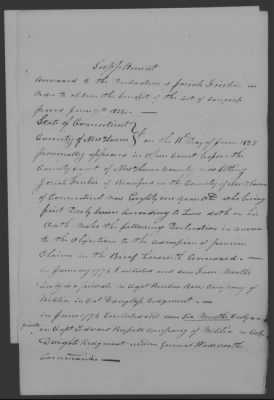 Supplement
Annexed to the Declaration of Josiah Frisbie in
order to obtain the benefit of the Act of Congress
passed June 7th 1832. —
State of Connecticut
County of New Haven } ss on the 11th Day of June 1833
personally appeared in Open Court before the
County Court of New Haven County now Sitting
Josiah Frisbie of Branford in the County of New Haven
of Connecticut now Eighty one years Old who being
first Duly Sworn According to Law doth on his
Oath Make the following Declaration in answer
to the Objections to the admission of pension
Claim in the Brief herewith Annexed —
in January 1776 I enlisted and served Two Months
as a private in Capt Company of
Militia in Col Douglass Regiment —
in June 1776 Enlisted and served Six Months
private
in Capt Edward Russell Company of Militia in
Regiment under General Wadsworth
Commander —